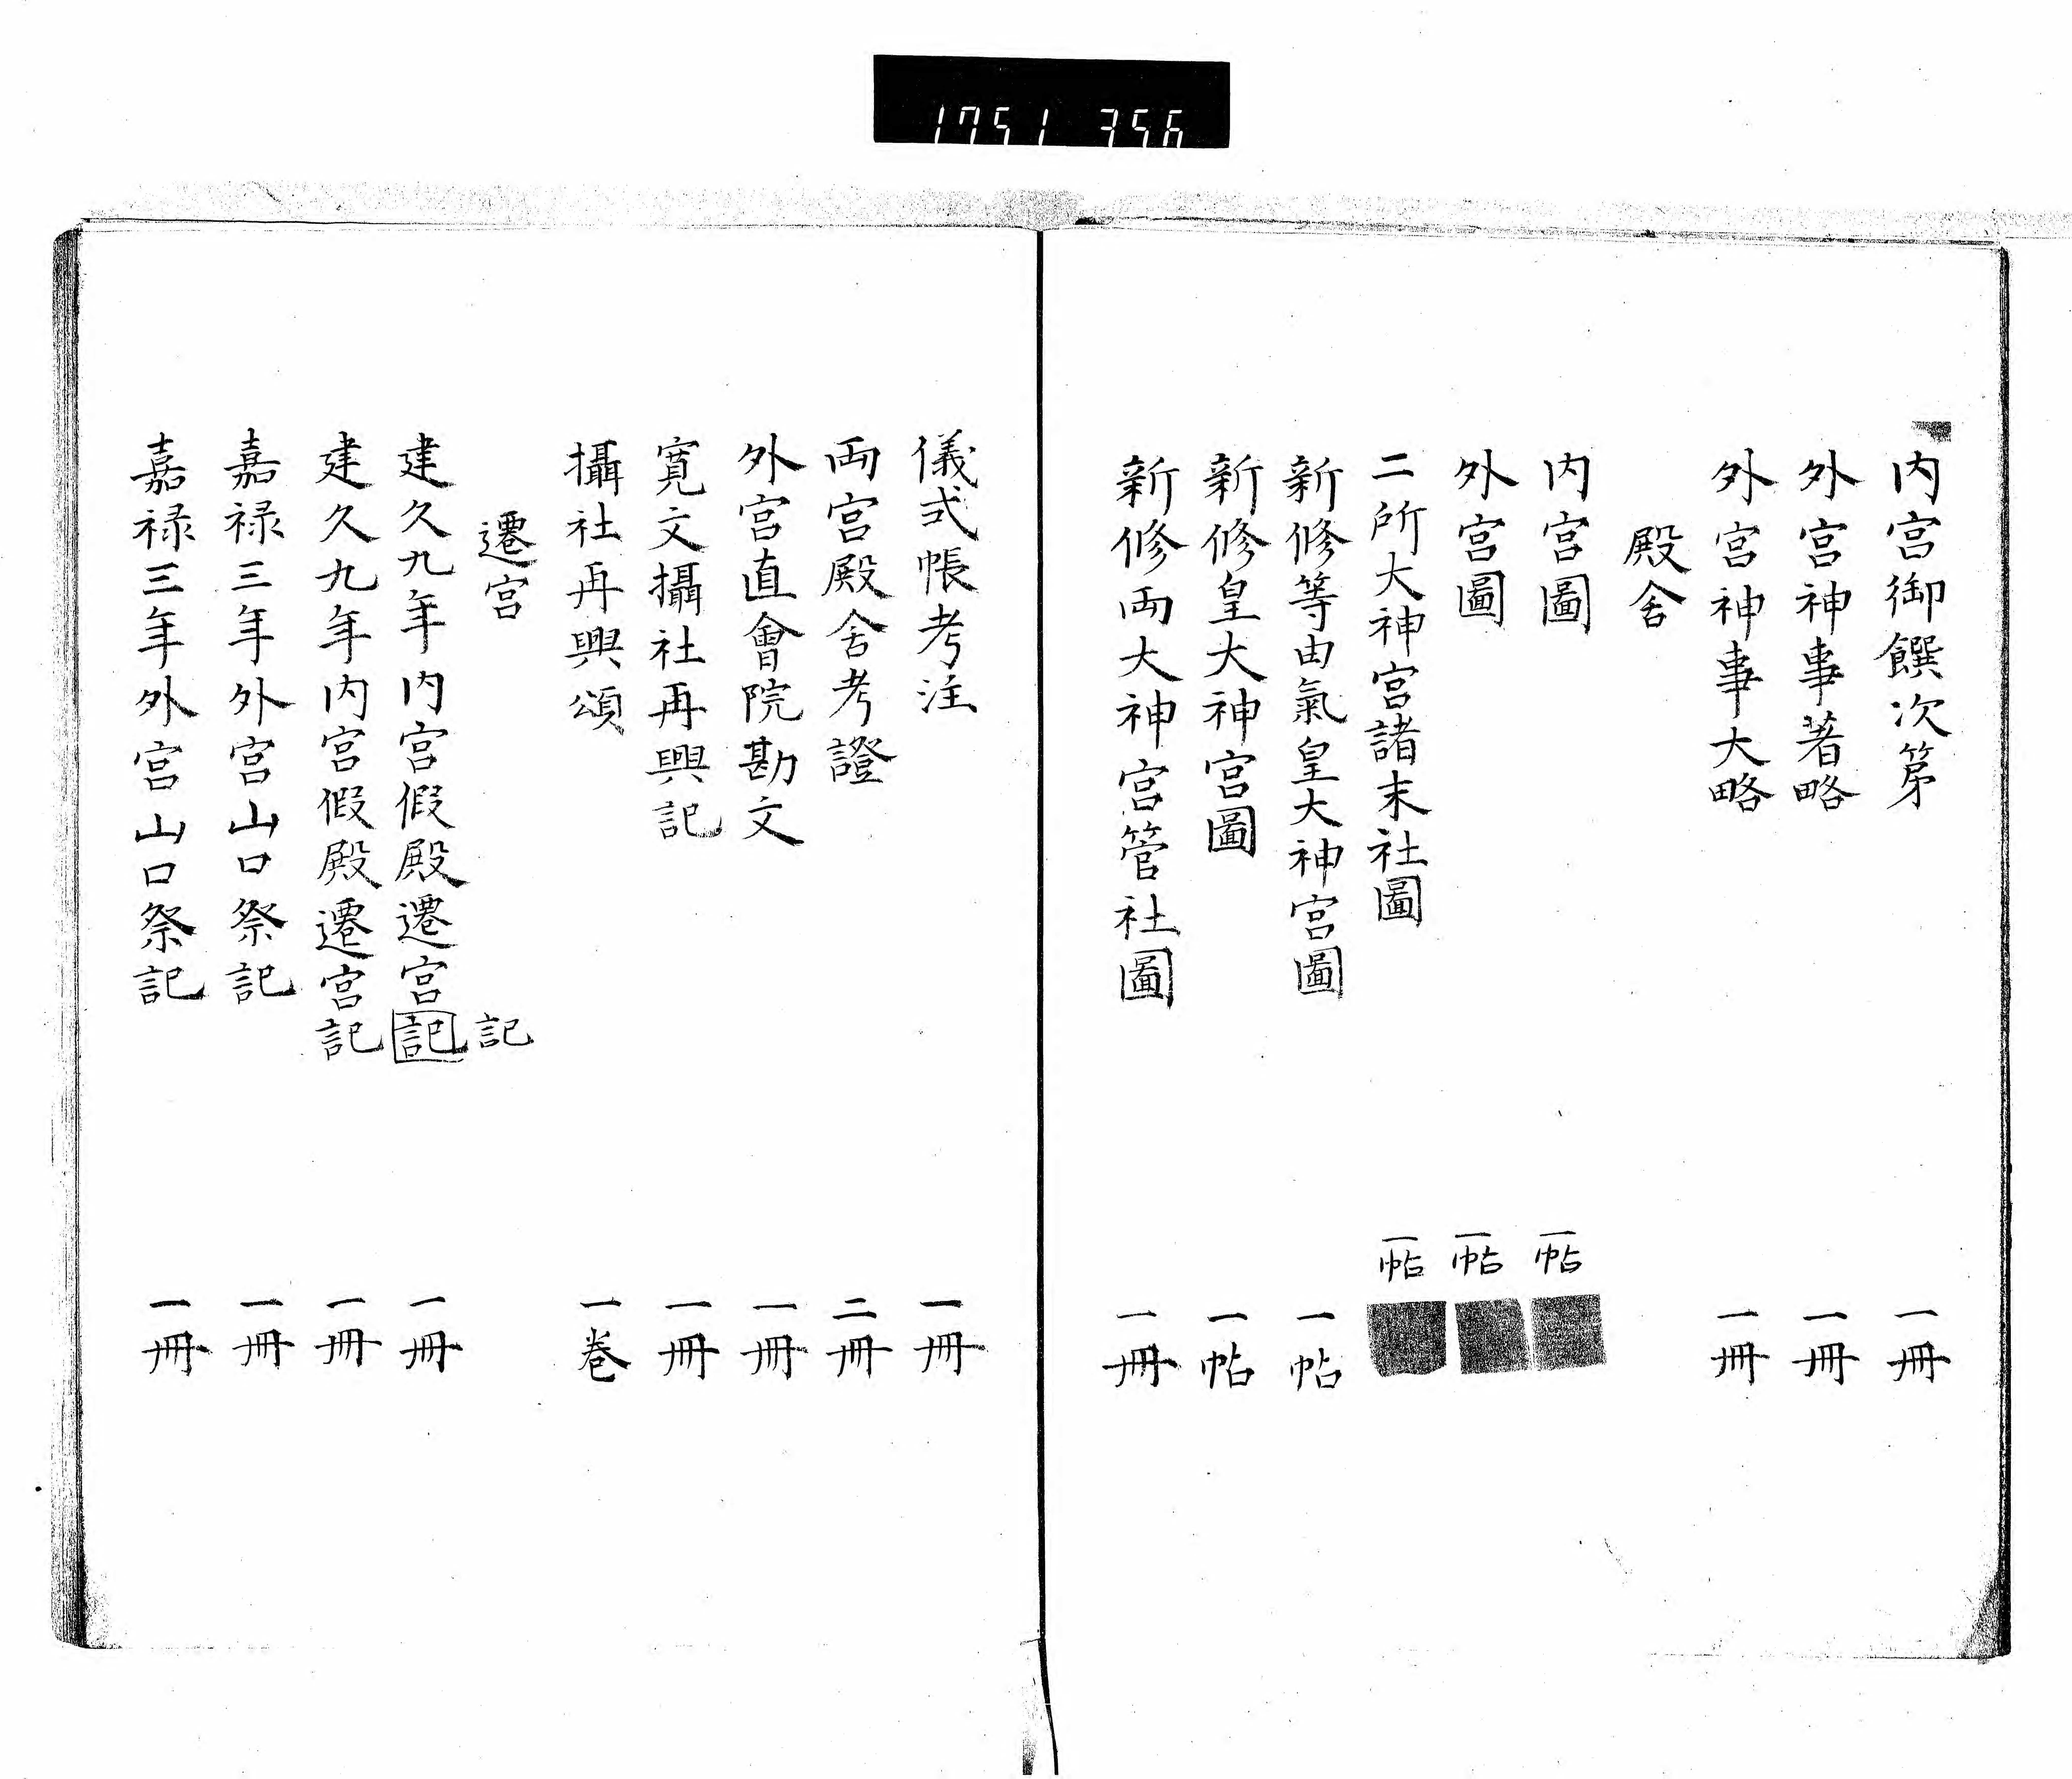 1751 356
内宮御饌次第 一冊
外宮神事著略 一冊
外宮神事大略 一冊
殿舍
内宮圖 一帖
外宮圖 一帖
二所大神宮諸末社圖 一帖
新修等由氣皇大神宮圖 一帖
新修皇大神宮圖 一帖
新修両大神宮管社圖 一冊
儀式帳考注 一冊
両宮殿舍考證 二冊
外宮直會院勘文 一冊
寛文攝社再興記 一冊
攝社再興頌 一卷
遷宮
記
建久九年内宮假殿遷宮記 一冊
建久九年内宮假殿遷宮記 一冊
嘉禄三年外宮山口祭記 一冊
嘉禄三年外宮山口祭記 一冊